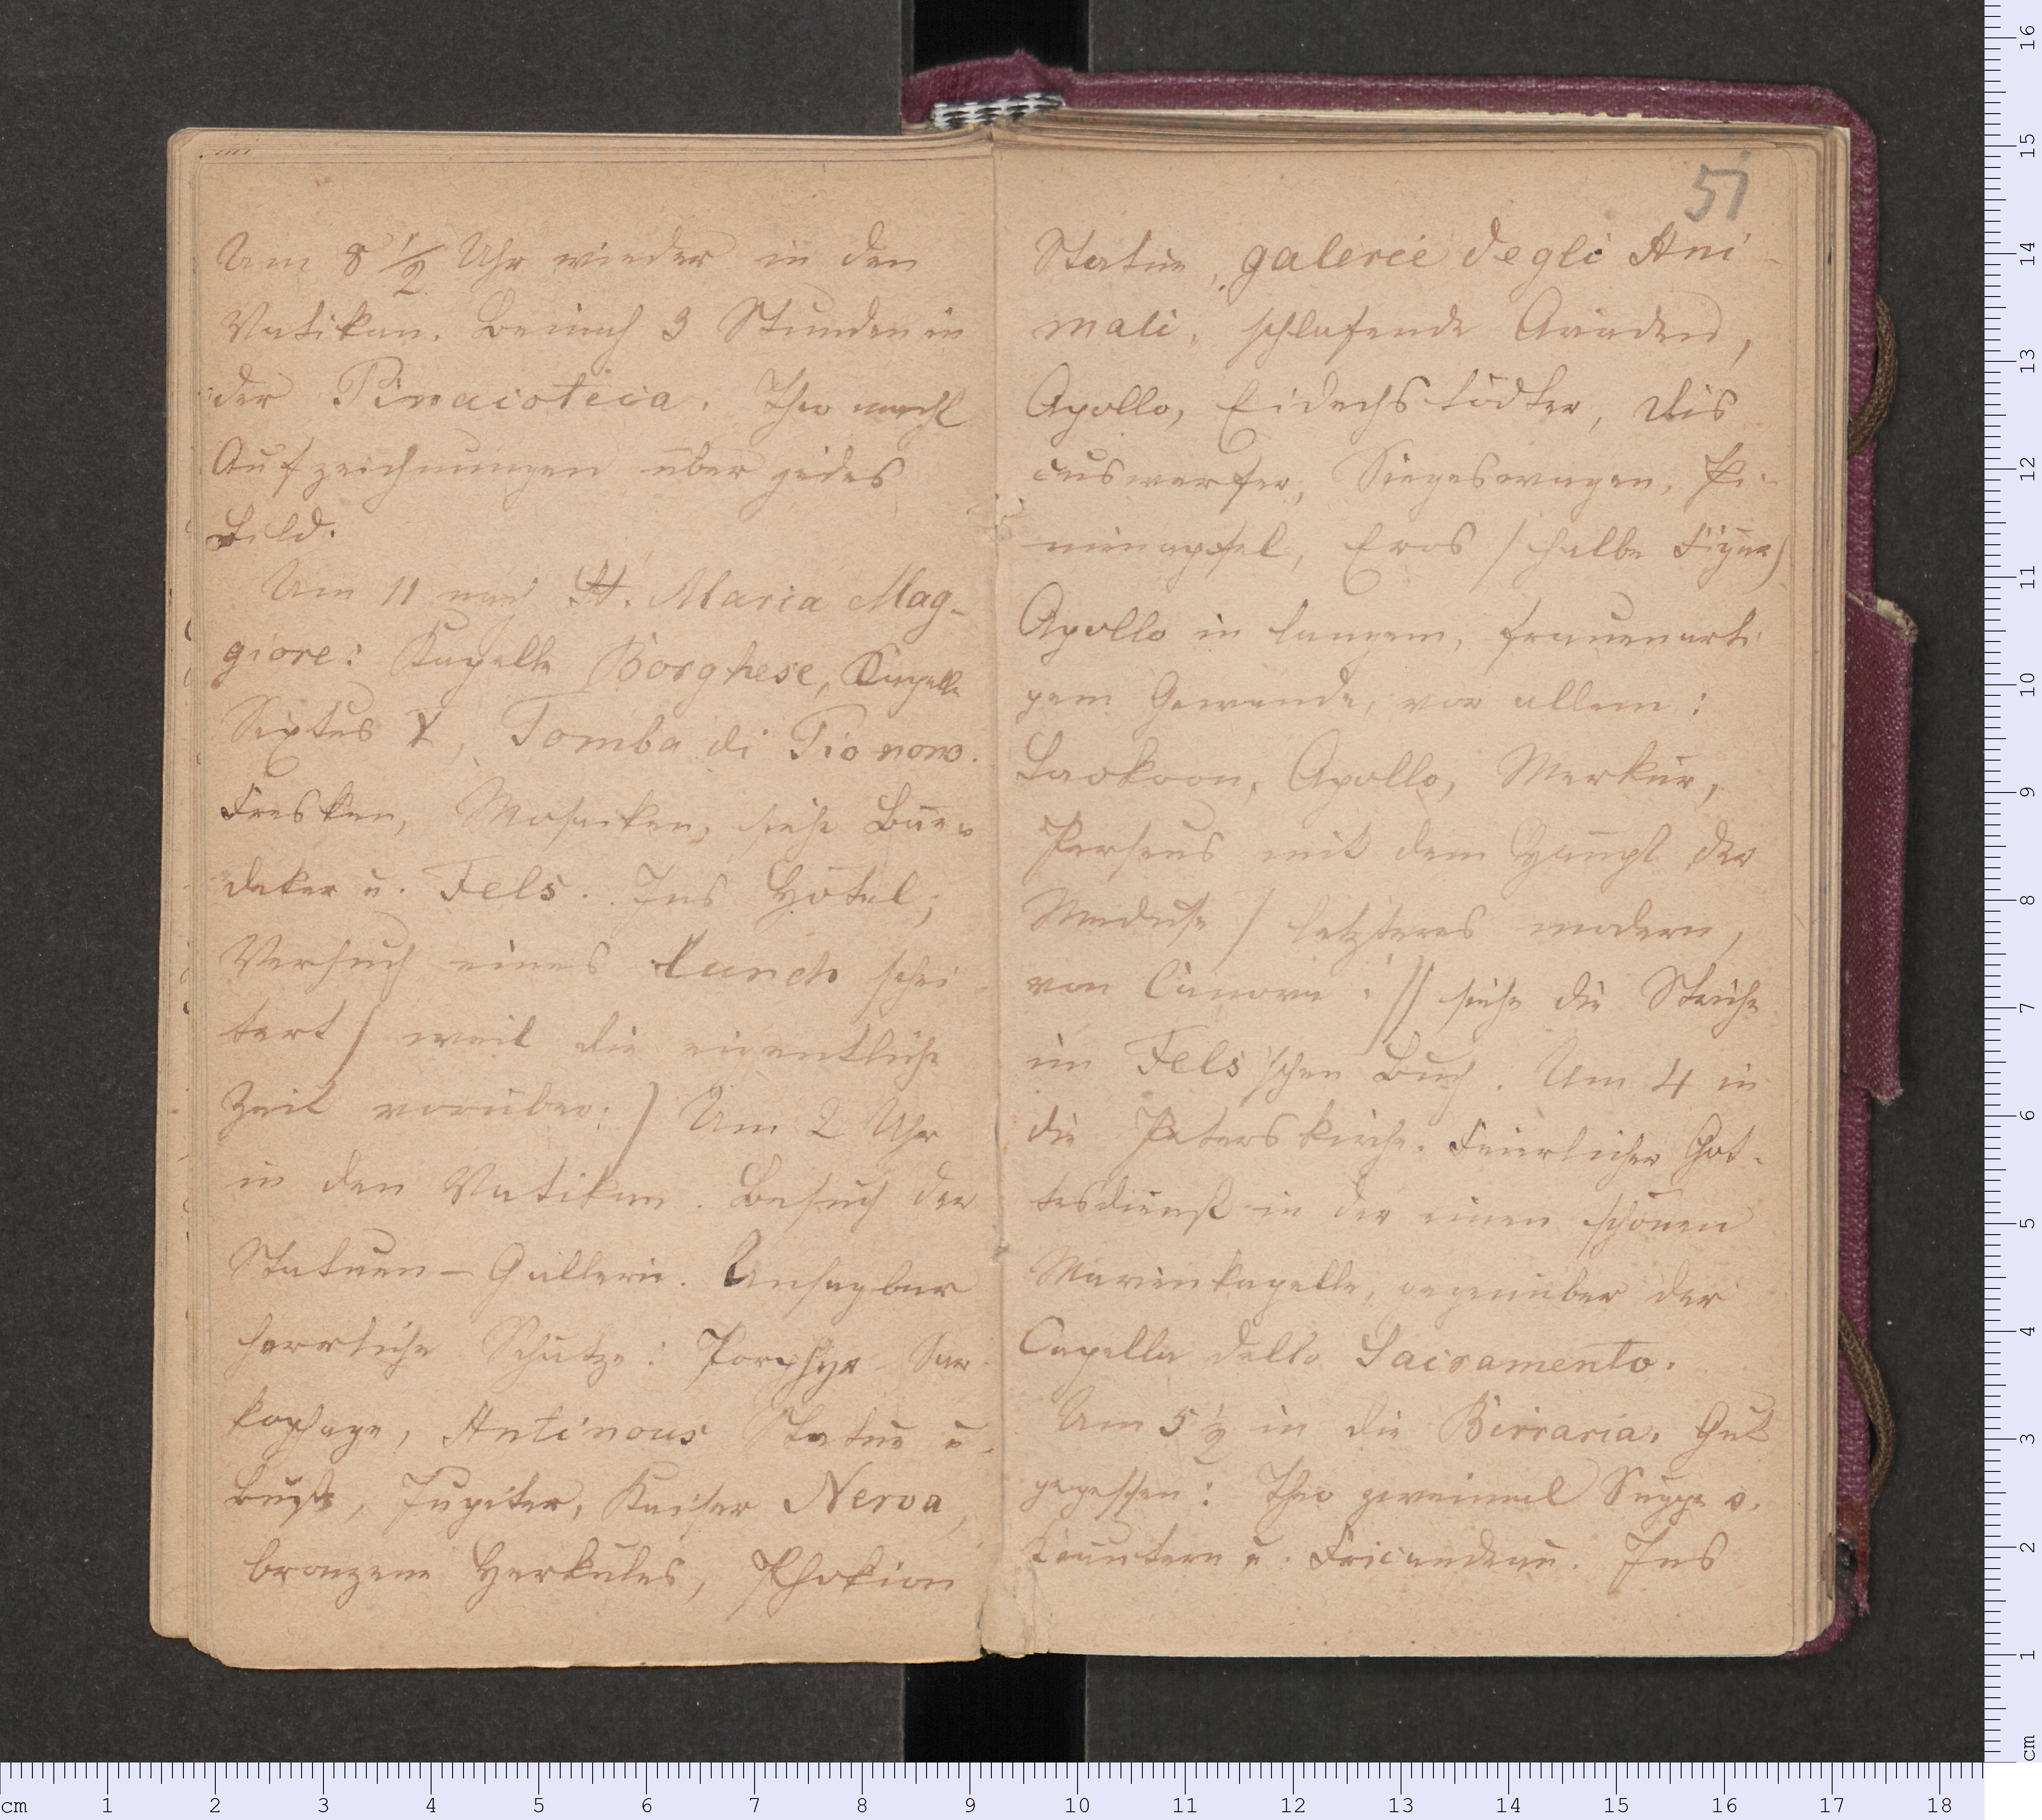 Um 8 1/2 Uhr wieder in den
Vatikan. Beinah 3 Stunden in
der Pinacoteca. Theo macht
Aufzeichnungen über jedes
Bild.
Um 11 nach St. Maria Mag-
giore: Kapelle Borghese, Kapelle
Sixtus V, Tomba di Pio nono.
Fresken, Mosaiken, siehe Bae-
deker u. Fels. Ins Hôtel;
Versuch eines lunch schei
tert / weil die eigentliche
Zeit vorüber. / Um 2 Uhr
in den Vatikan. Besuch der
Statuen-Gallerie. Unsagbar
herrliche Schätze: Porphyr-Sar-
kophage, Antinous Statue u.
Büste, Jupiter, Kaiser Nerva,
bronzene Herkules, Phokion
51
Statue, galerie degli Ani-
mali, schlafende Ariadne,
Apollo, Eidechstödter, Dis
cuswerfer, Siegeswagen, Pi-
nienapfel, Eros / halbe Figur /
Apollo in langem, frauenarti
gem Gewande, vor allem:
Laokoon, Apollo, Merkur,
Perseus mit dem Haupt der
Meduse / letzteres modern,
von Canova; // siehe die Striche
im Fels'schen Buch. Um 4 in
die Peterskirche. Feierlicher Got-
tesdienst in der einen schönen
Marienkapelle, gegenüber der
Capella dello Sacramento.
Um 5 1/2 in die Birraria. Gut
gegessen: Theo zweimal Suppe v.
Kräutern u. Fricandeau. Ins